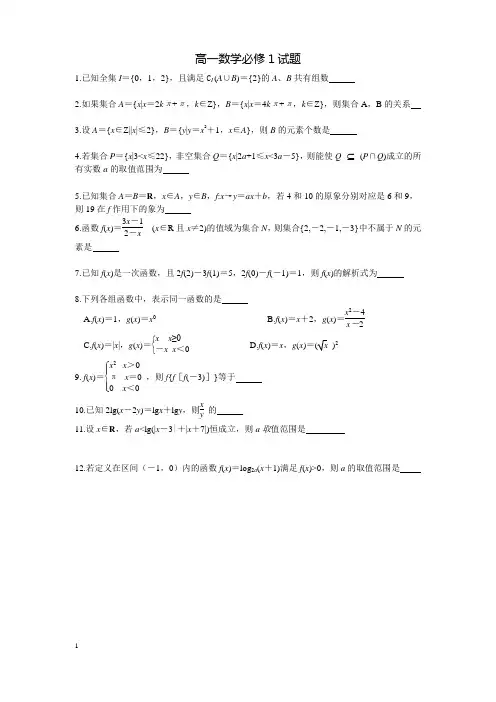 高一数学必修1试题
1.已知全集I={0,1,2},且满足∁I (A∪B)={2}的A、B共有组数
2.如果集合A={x|x=2kπ+π,k∈Z},B={x|x=4kπ+π,k∈Z},则集合A,B的关系
3.设A={x∈Z||x|≤2},B={y|y=x²+1,x∈A},则B的元素个数是
4.若集合P={x|3<x≤22},非空集合Q={x|2a+1≤x<3a-5},则能使Q ⊆ (P∩Q)成立的所
有实数a的取值范围为
5.已知集合A=B=R,x∈A,y∈B,f:x→y=ax+b,若4和10的原象分别对应是6和9,
则19在f作用下的象为
6.函数f(x)=(3x-1)/(2-x) (x∈R且x≠2)的值域为集合N,则集合{2,-2,-1,-3}中不属于N的元
素是
7.已知f(x)是一次函数,且2f(2)-3f(1)=5,2f(0)-f(-1)=1,则f(x)的解析式为
8.下列各组函数中,表示同一函数的是
A.f(x)=1,g(x)=x⁰ B.f(x)=x+2,g(x)=(x²-4)/(x-2)
C.f(x)=|x|,g(x)={x x≥0 -x x<0 D.f(x)=x,g(x)=(√x )²
9. f(x)={x² x>0 π x=0 0 x<0 ,则f{f[f(-3)]}等于
10.已知2lg(x-2y)=lgx+lgy,则x/y 的
11.设x∈R,若a<lg(|x-3|+|x+7|)恒成立,则a取值范围是
12.若定义在区间(-1,0)内的函数f(x)=log2a(x+1)满足f(x)>0,则a的取值范围是
1